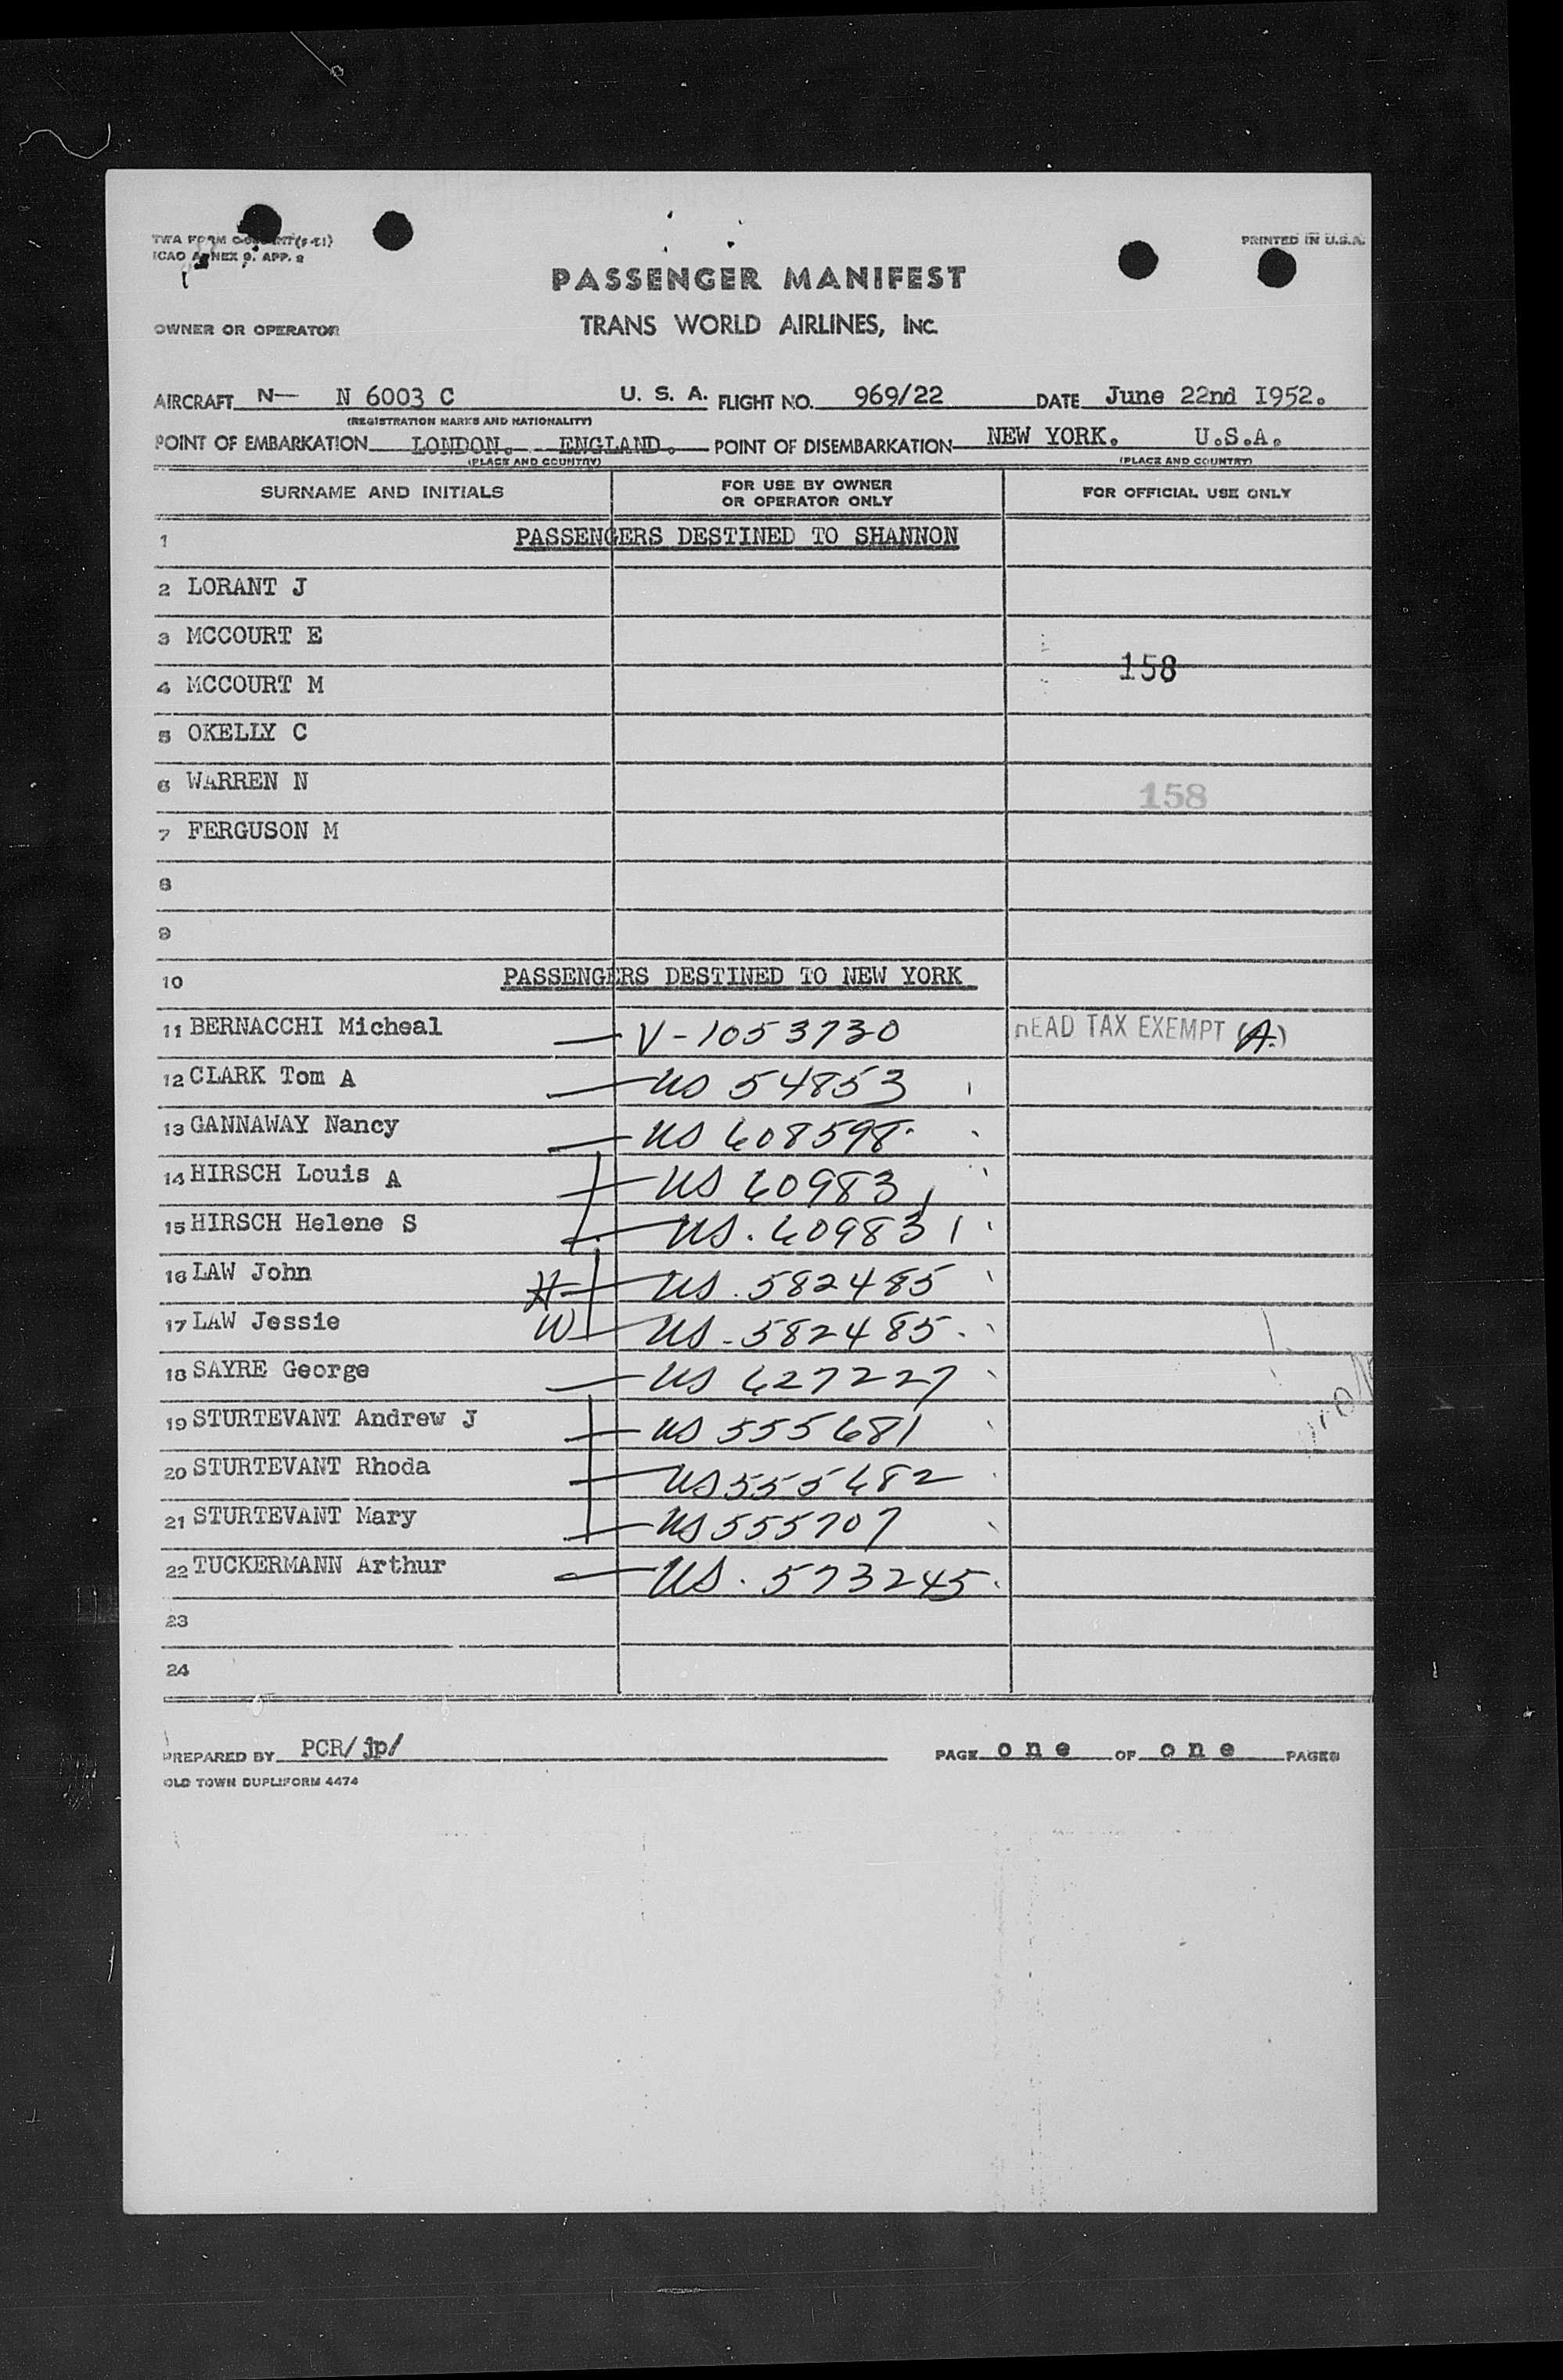 PRINTED IN U.S.A.
ICAO ANNEX 9, APP. 2
PASSENGER MANIFEST
OWNER OR OPERATOR TRANS WORLD AIRLINES, INC.
AIRCRAFT N— N 6003 C U. S. A. FLIGHT NO. 969/22 DATE June 22nd I952.
(REGISTRATION MARKS AND NATIONALITY)
POINT OF EMBARKATION LONDON. ENGLAND. POINT OF DISEMBARKATION NEW YORK. U.S.A.
(PLACE AND COUNTRY) (PLACE AND COUNTRY)
SURNAME AND INITIALS FOR USE BY OWNER OR OPERATOR ONLY FOR OFFICIAL USE ONLY
1 PASSENGERS DESTINED TO SHANNON
2 LORANT J
3 MCCOURT E
158
4 MCCOURT M
5 OKELLY C
6 WARREN N 158
7 FERGUSON M
8
9
10 PASSENGERS DESTINED TO NEW YORK
11 BERNACCHI Micheal — V-1053730 HEAD TAX EXEMPT (A.)
12 CLARK Tom A — US 54853
13 GANNAWAY Nancy — US 608598
14 HIRSCH Louis A — US 60983
15 HIRSCH Helene S — US. 60983
16 LAW John H — US. 582485
17 LAW Jessie W — US - 582485.
18 SAYRE George — US 627227
19 STURTEVANT Andrew J — US 555681
20 STURTEVANT Rhoda — US 555682
21 STURTEVANT Mary — US 555707
22 TUCKERMANN Arthur — US. 573245.
23
24
PREPARED BY PCR/jp/ PAGE one OF one PAGES
OLD TOWN DUPLIFORM 4474